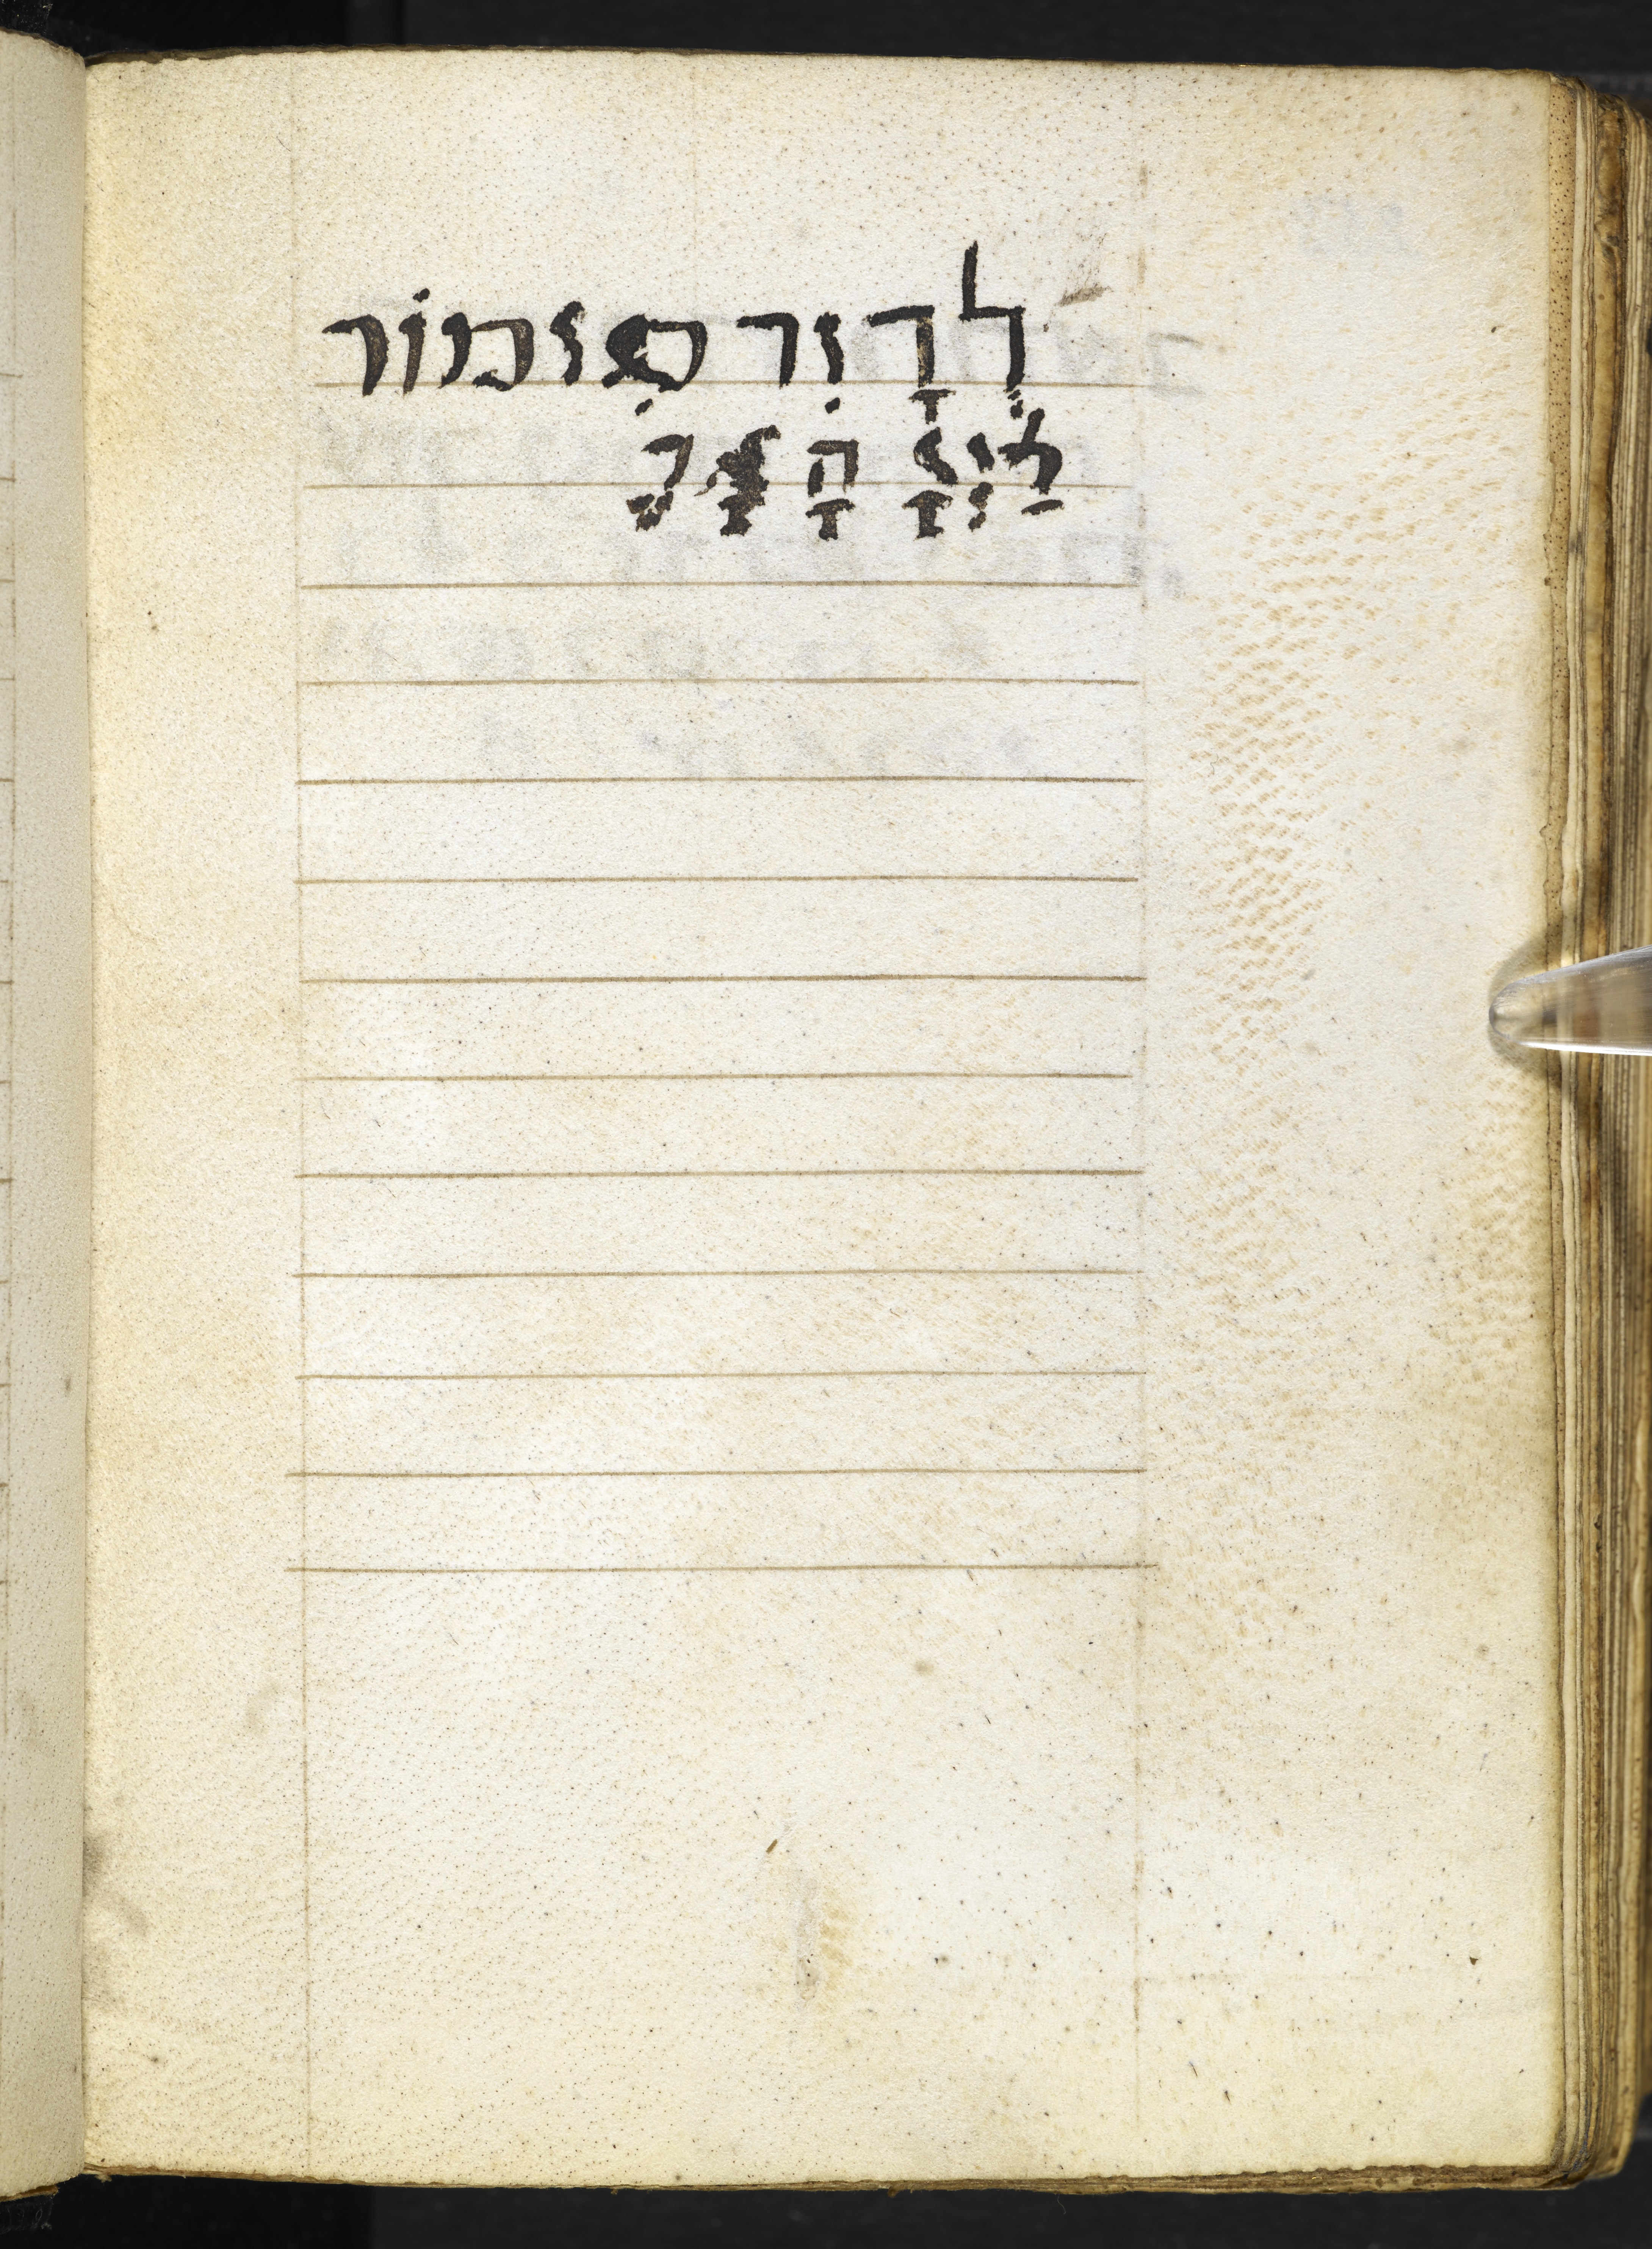 לְדָוִד מִזמוֹר
לַיְיָ הָאָרֶ